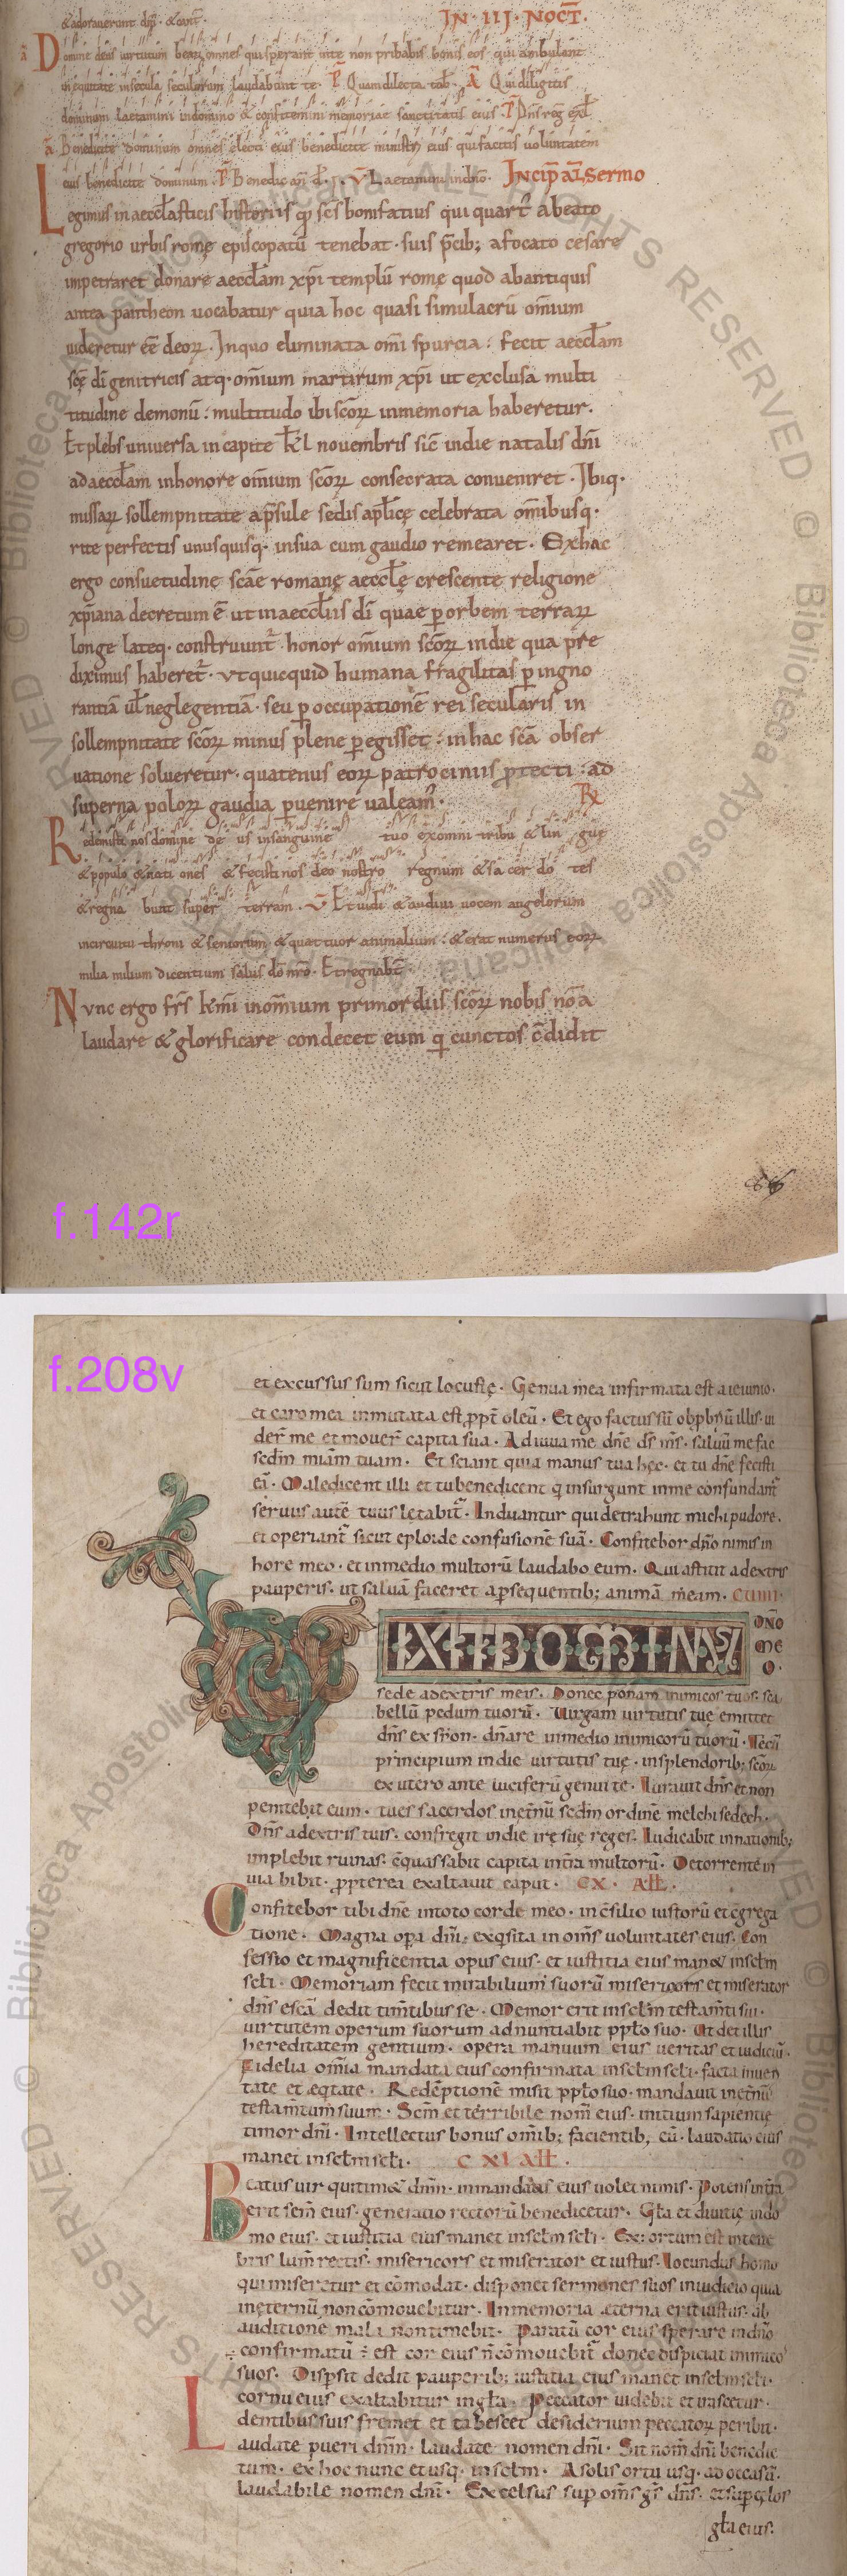 &adorauerunt dnm̄. &cant̄.
IN · III · NOCT̄.
ā Domine deus uirtutum beati omnes qui sperant in te non pribabis bonis eos qui ambulant
in equitate in secula seculorum laudabunt te. P̄ Quam dilecta tab̄. Ā Qui diligitis
dominum laetamini in domino & confitemini memoriae sanctitatis eius. P̄ Dn̄s reḡ exl̄
ā Benedicite dominum omnes electi eius benedicite ministri eius qui facitis uoluntatem
eius benedicite dominum. P̄ Benedic an̄ d̄. V̄ Laetamini in dn̄o. Incip̄ aL̄ Sermo
Legimus in aeccl̄asticis historiis qđ sc̄s bonifatius qui quart᷒ a beato
gregorio urbis romę episcopatū tenebat · suis p̄cib; afocato cesare
impetraret donare aeccl̄am xp̄i templū romę quod ab antiquis
antea pantheon uocabatur quia hoc quasi simulacrū om̄ium
uideretur eē deoꝝ. In quo eliminata om̄i spurcia: fecit aeccl̄am
sc̄ę dī genitricis atq· om̄ium martirum xp̄i ut exclusa multi
titudine demonū: multitudo ibi sc̄oꝝ in memoria haberetur.
Et plebs uniuersa in capite k̄l nouembris sic̄ in die natalis dn̄i
ad aeccl̄am in honore om̄ium sc̄oꝝ consecrata conueniret. Ibiq·
missaꝝ sollempnitate a p̄sule sedis apl̄icę celebrata om̄ibusq·
rite perfectis unusquisq· in sua cum gaudio remearet. Ex hac
ergo consuetudinę sc̄ae romanę aeccl̄ę crescente religione
xp̄iana decretum ē ut in aeccl̄iis dī quae ꝑ orbem terraꝝ
longe lateq· construunt᷒ · honor om̄ium sc̄oꝝ in die qua p̄re
diximus haberet᷒ · ut quicquid humana fragilitas ꝑ ingno
rantiā ul̄ neglegentiā · seu ꝑ occupationē rei secularis in
sollempnitate sc̄oꝝ minus plene ꝑegisset: in hac sc̄ā obser
uatione solueretur · quatenus eoꝝ patrociniis ꝓtecti: ad
superna poloꝝ gaudia ꝑuenire ualeam᷒ · ℟
Redemisti nos domine deus in sanguine tuo ex omni tribu & lin gue
& populo & nati ones & fecisti nos deo nostro regnum & sa cer do tes
& regna bunt super terram. V̄ Et uidi & audiui uocem angelorum
in circuitu throni & seniorum & quattuor animalium: & erat numerus eoꝝ
milia milium dicentium salus dō nr̄o. Et regnab̄t.
Nunc ergo fr̄s km̄i in om̄ium primordiis sc̄oꝝ nobis nōa
laudare & glorificare condecet eum qi cunctos c̄didit
f.142r
f.208v
et excussus sum sicut locustę. Genua mea infirmata est a ieiunio.
et caro mea inmutata est ꝓpt̄ oleū. Et ego factus sū obprbriū illis · ui
der̄ me et mouer̄ capita sua. Adiuua me dn̄e ds̄ ms̄ · saluū me fac
sedm̄ miām tuam. Et sciant quia manus tua hęc · et tu dn̄e fecisti
eā. Maledicent illi et tu benedicent q insurgunt in me confundant᷒
seruus autē tuus letabit᷒. Induantur qui detrahunt michi pudore.
et operiant᷒ sicut eploide confusione suā. Confitebor dn̄o nimis in
hore meo · et in medio multorū laudabo eum. Qui astitit a dextris
pauperis · ut saluā faceret a ꝑsequentib; animā meam. CVIIII
DIXIT DOMINUS DNO
ME
O.
sede a dextris meis. Donec ponam inimicos tuos · sca
bellū pedum tuorū. Uirgam uirtutis tuę emittet
dn̄s ex sion · dn̄are in medio inimicorū tuorū. Tecū
principium in die uirtutis tuę · in splendorib; sc̄oꝝ
ex utero ante luciferū genui te. Iurauit dn̄s et non
penitebit eum · tu es sacerdos in et̄nū sedm̄ ordinē melchisedech.
Dn̄s a dextris tuis · confregit in die irę suę reges. Iudicabit in nationib;
implebit ruinas · c̄quassabit capita in t̄ra multorū. De torrente in
uia bibit · ꝓpterea exaltauit caput. CX. ALL.
Confitebor tibi dn̄e in toto corde meo · in c̄silio iustorū et c̄grega
tione. Magna opa dn̄i; exqsita in om̄s uoluntates eius. Con
fessio et magnificentia opus eius · et iustitia eius man& in sclm̄
scl̄i. Memoriam fecit mirabilium suorū misericors et miserator
dn̄s escā dedit tim̄tibus se. Memor erit in sclm̄ testam̄ti sui ·
uirtutem operum suorum adnuntiabit ppl̄o suo. Ut det illis
hereditatem gentium · opera manuum eius ueritas et iudiciū.
Fidelia om̄ia mandata eius confirmata in sclm̄ scl̄i · facta in ueri
tate et ęqtate. Redēptionē misit ppl̄o suo · mandauit in et̄nū
testam̄tum suum. Scm̄ et terribile nom̄ eius · initium sapientię
timor dn̄i. Intellectus bonus om̄ib; facientib; eū · laudatio eius
manet in sclm̄ scl̄i. C XI ALL.
Beatus uir qui tim& dn̄m · in mandatis eius uolet nimis. Potens in t̄ra
erit sem̄ eius · generatio rectorū benedicetur. Gl̄a et diuitię in do
mo eius · et iustitia eius manet in sclm̄ scl̄i. Exortum est in tene
bris lum̄ rectis · misericors et miserator et iustus. Iocundus homo
qui miseretur et cōmodat · disponet sermones suos in iudicio quia
in ęternū non cōmouebitur. In memoria ęterna erit iustus · ab
auditione mala non timebit. Paratū cor eius sperare in dn̄o
confirmatū est cor eius n̄ cōmouebit᷒ donec dispiciat inimico
suos. Dispsit dedit pauperib; iustitia eius manet in sclm̄ scl̄i.
cornu eius exaltabitur in gl̄a. Peccator uidebit et irascetur.
dentibus suis fremet et tabescet desiderium peccatoꝝ peribit.
Laudate pueri dn̄m · laudate nomen dn̄i. Sit nom̄ dn̄i benedic
tum · ex hoc nunc et usq· in sclm̄. A solis ortu usq· ad occasū.
laudabile nomen dn̄i. Excelsus sup om̄s gs̄ dn̄s · et sup cęlos
gl̄a eius.